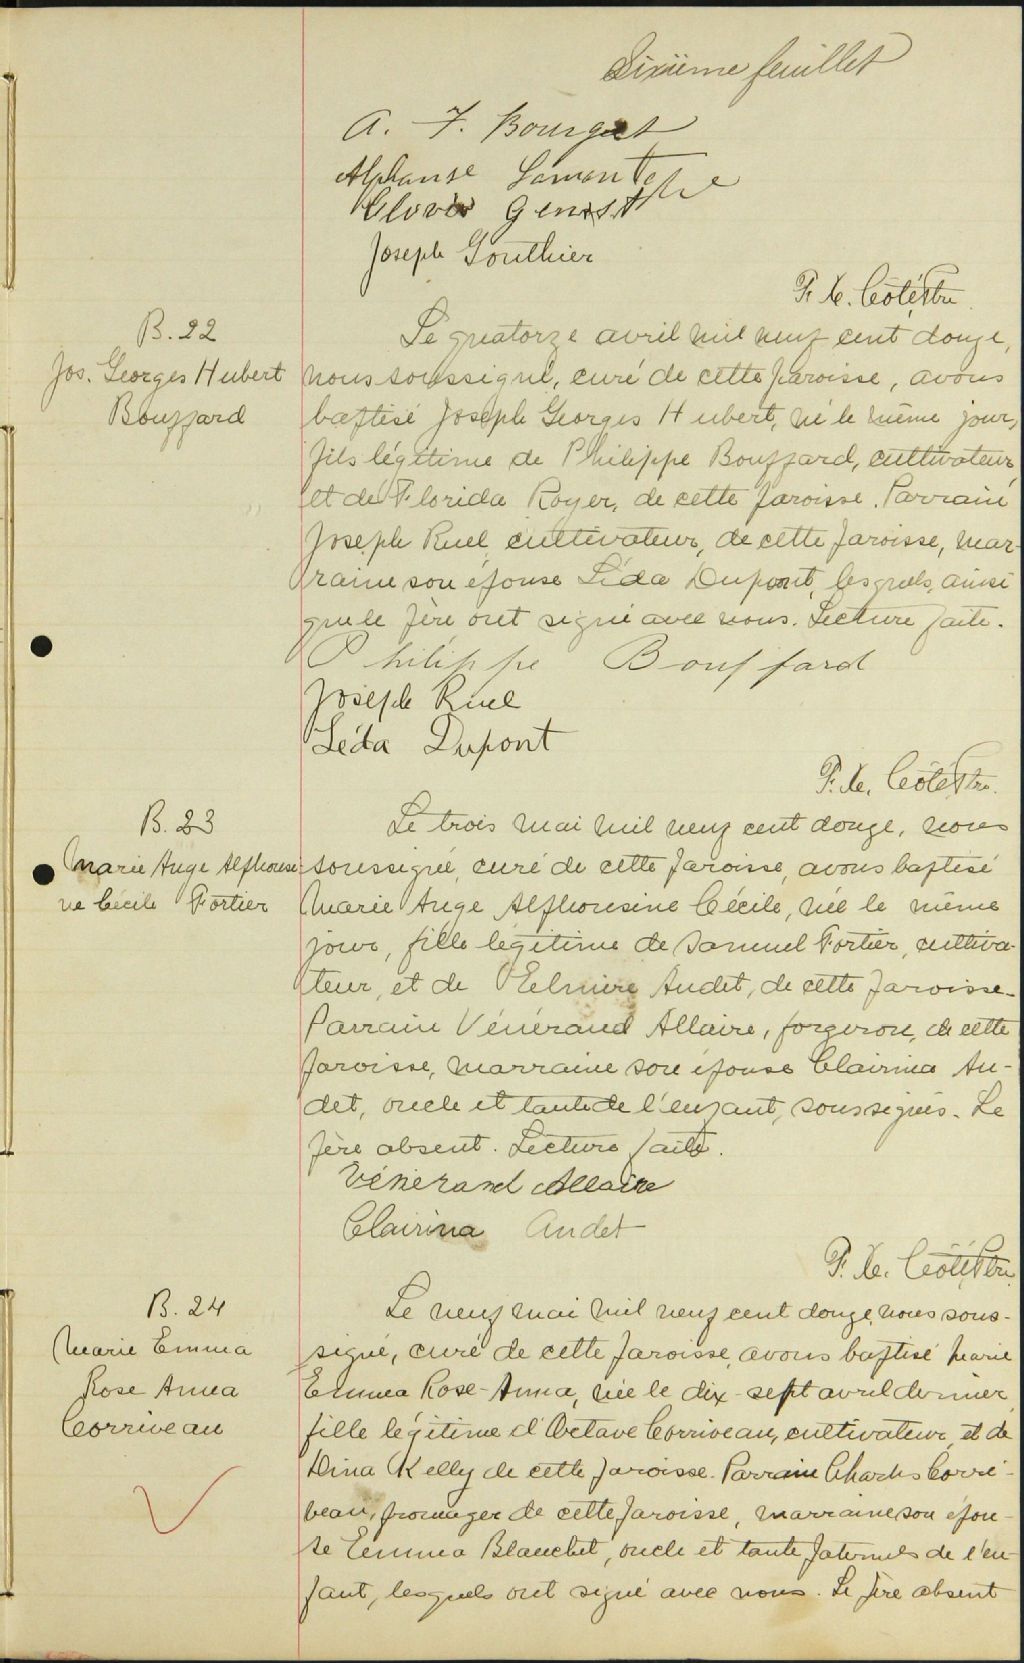 Sixième feuillet
A. F. Bourget
Alphonse Lamontagne
Clovis Genest
Joseph Gouthier
F. X. Côté, Ptre.
B. 22
Jos. Georges Hubert
Bouffard
Le quatorze avril mil neuf cent douze,
nous soussigné, curé de cette paroisse, avons
baptisé Joseph Georges Hubert, né le même jour,
fils légitime de Philippe Bouffard, cultivateur,
et de Florida Royer, de cette paroisse. Parrain
Joseph Ruel, cultivateur, de cette paroisse, mar-
raine son épouse Léda Dupont, lesquels, ainsi
que le père ont signé avec nous. Lecture faite.
Philippe Bouffard
Joseph Ruel
Léda Dupont
F. X. Côté, Ptre.
B. 23
Marie Ange Alphonsi-
ne Cécile Fortier
Le trois mai mil neuf cent douze, nous
soussigné, curé de cette paroisse, avons baptisé
Marie Ange Alphonsine Cécile, née le même
jour, fille légitime de Samuel Fortier, cultiva-
teur, et de Zelmire Audet, de cette paroisse.
Parrain Vénérand Allaire, forgeron, de cette
paroisse, marraine son épouse Clairina Au-
det, oncle et tante de l'enfant, soussignés. Le
père absent. Lecture faite.
Vénérand Allaire
Clairina Audet
F. X. Côté, Ptre.
B. 24
Marie Emma
Rose Anna
Corriveau
Le neuf mai mil neuf cent douze nous sous-
signé, curé de cette paroisse, avons baptisé Marie
Emma Rose-Anna, née le dix-sept avril dernier,
fille légitime d'Octave Corriveau, cultivateur, et de
Dina Kelly de cette paroisse. Parrain Charles Corri-
veau, fromager de cette paroisse, marraine son épou-
se Emma Blanchet, oncle et tante paternels de l'en-
fant, lesquels ont signé avec nous. Le père absent